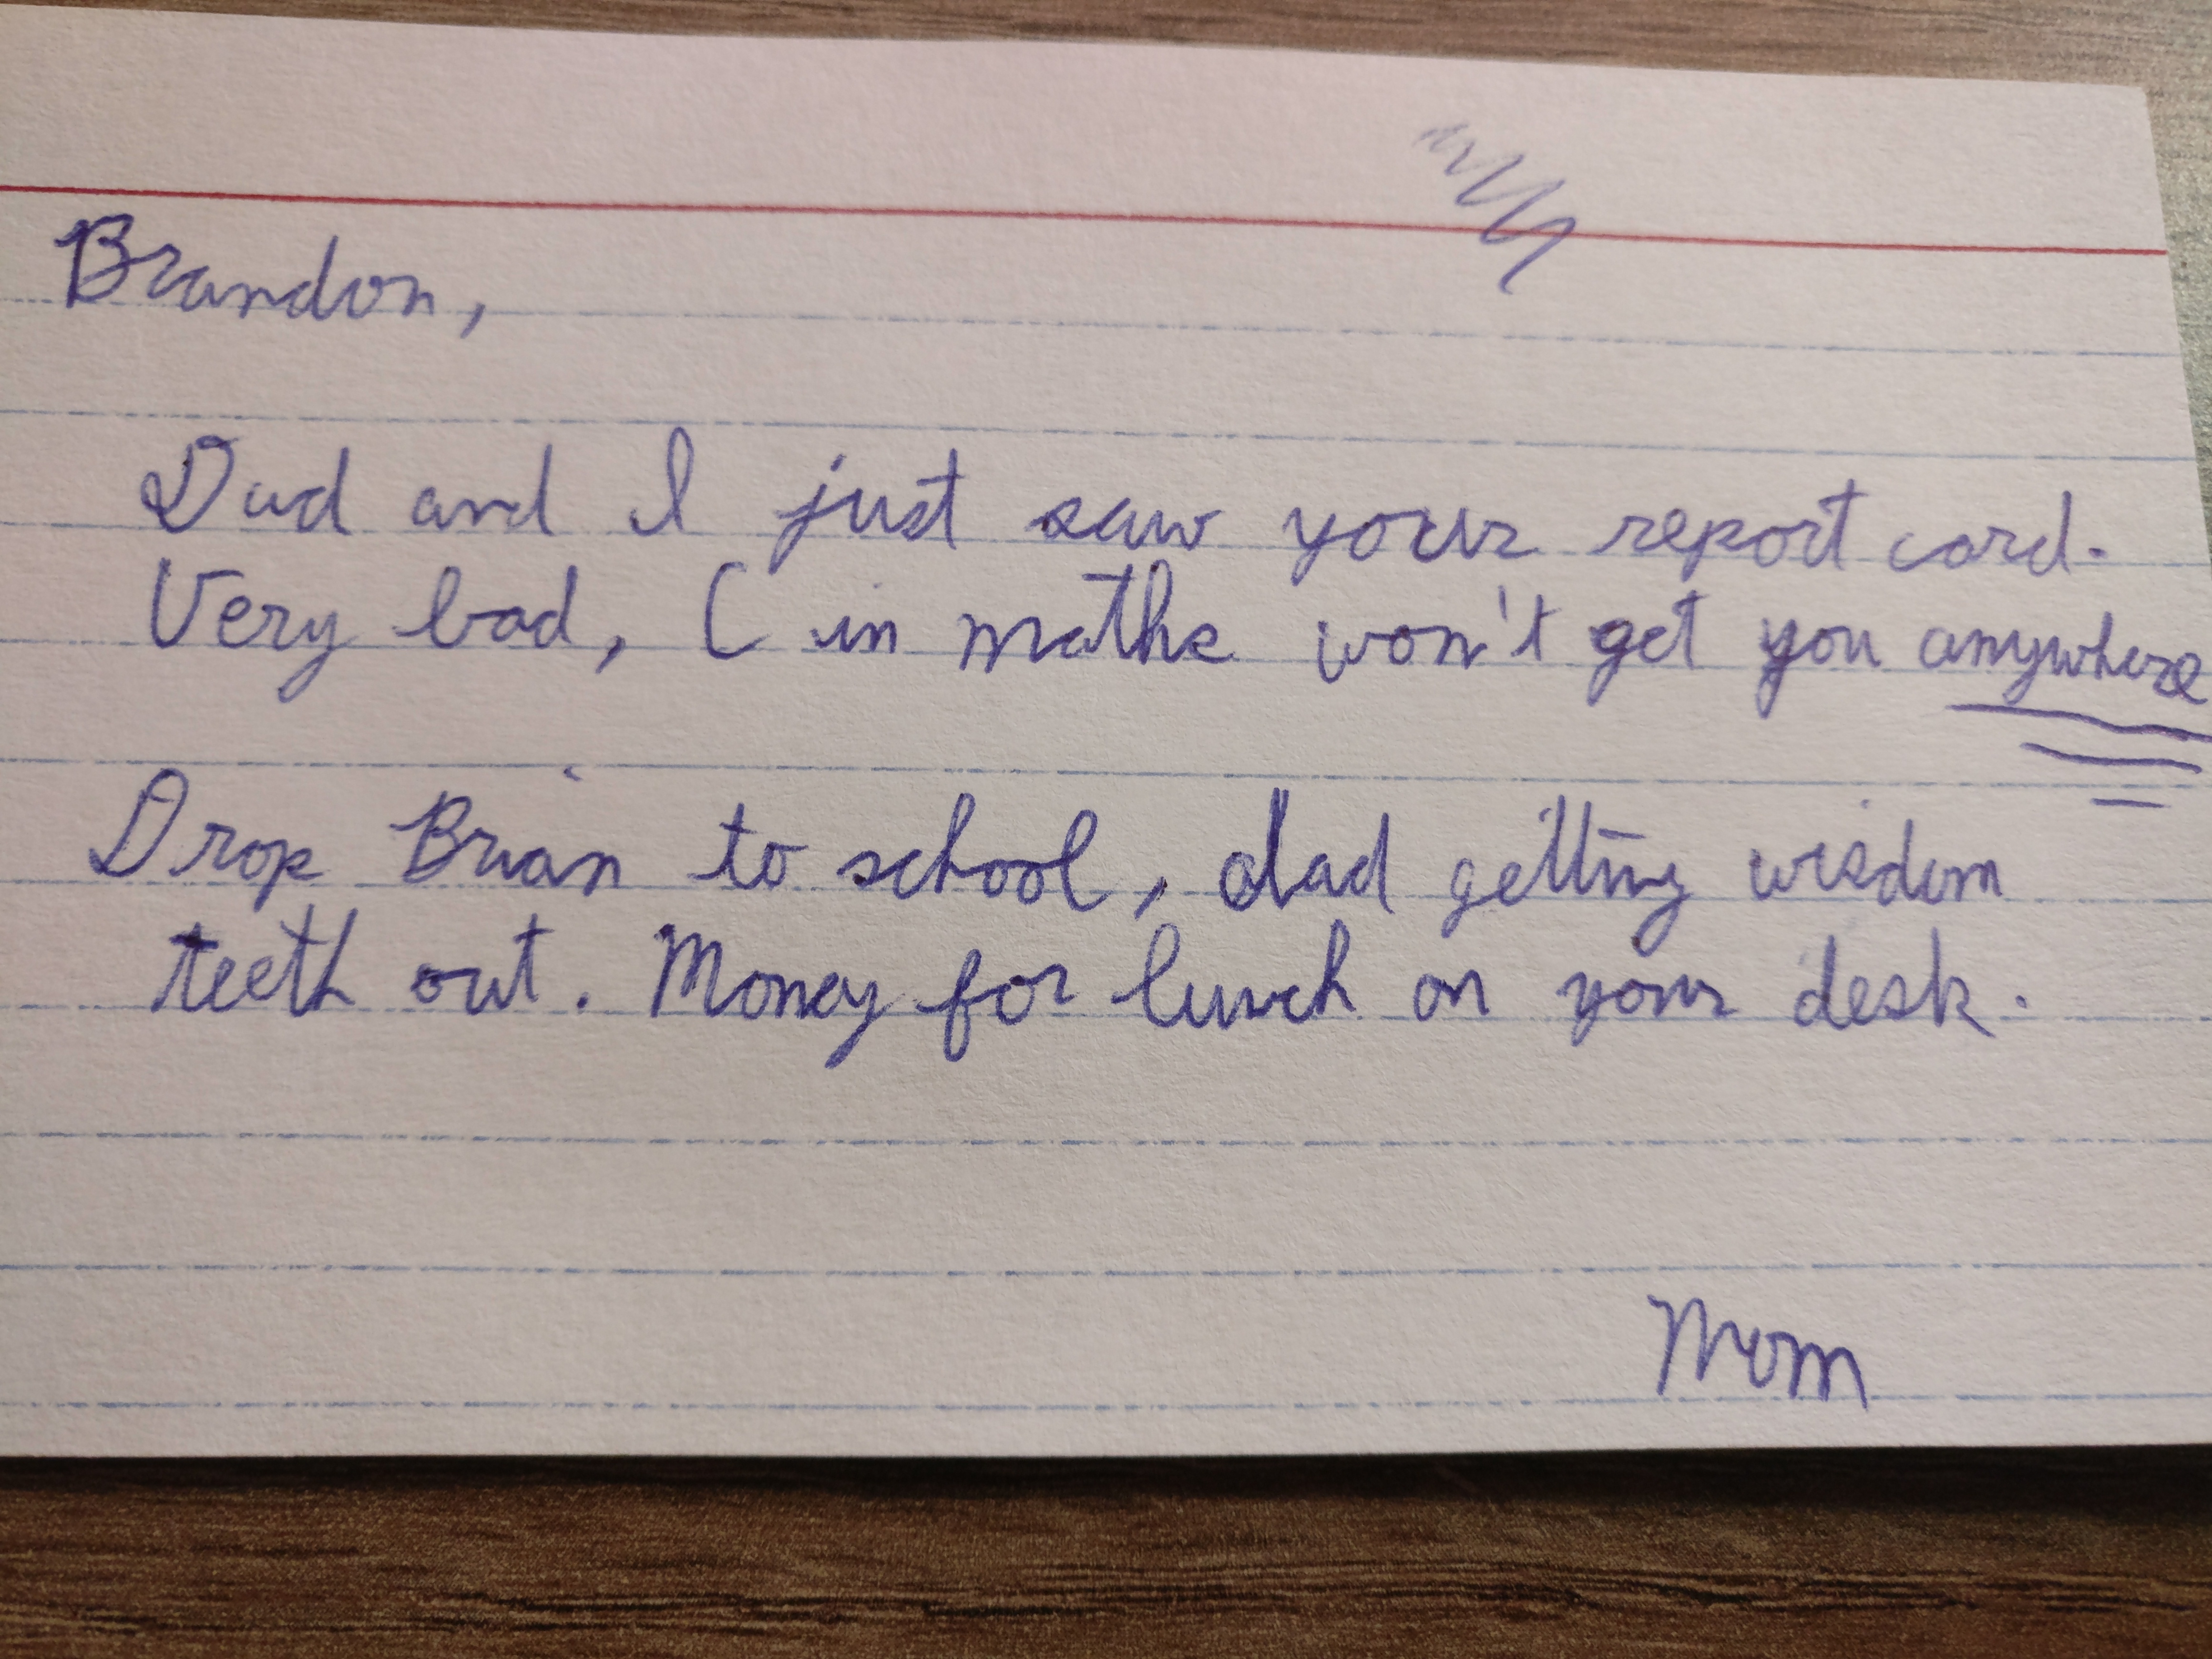 Brandon,
Dad and I just saw your report card.
Very bad, C in maths won't get you anywhere
Drop Brian to school, dad getting wisdom
teeth out. Money for lunch on your desk.
Mom